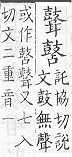 託協切說
文鼓無聲
或作又七入
切文二重音一